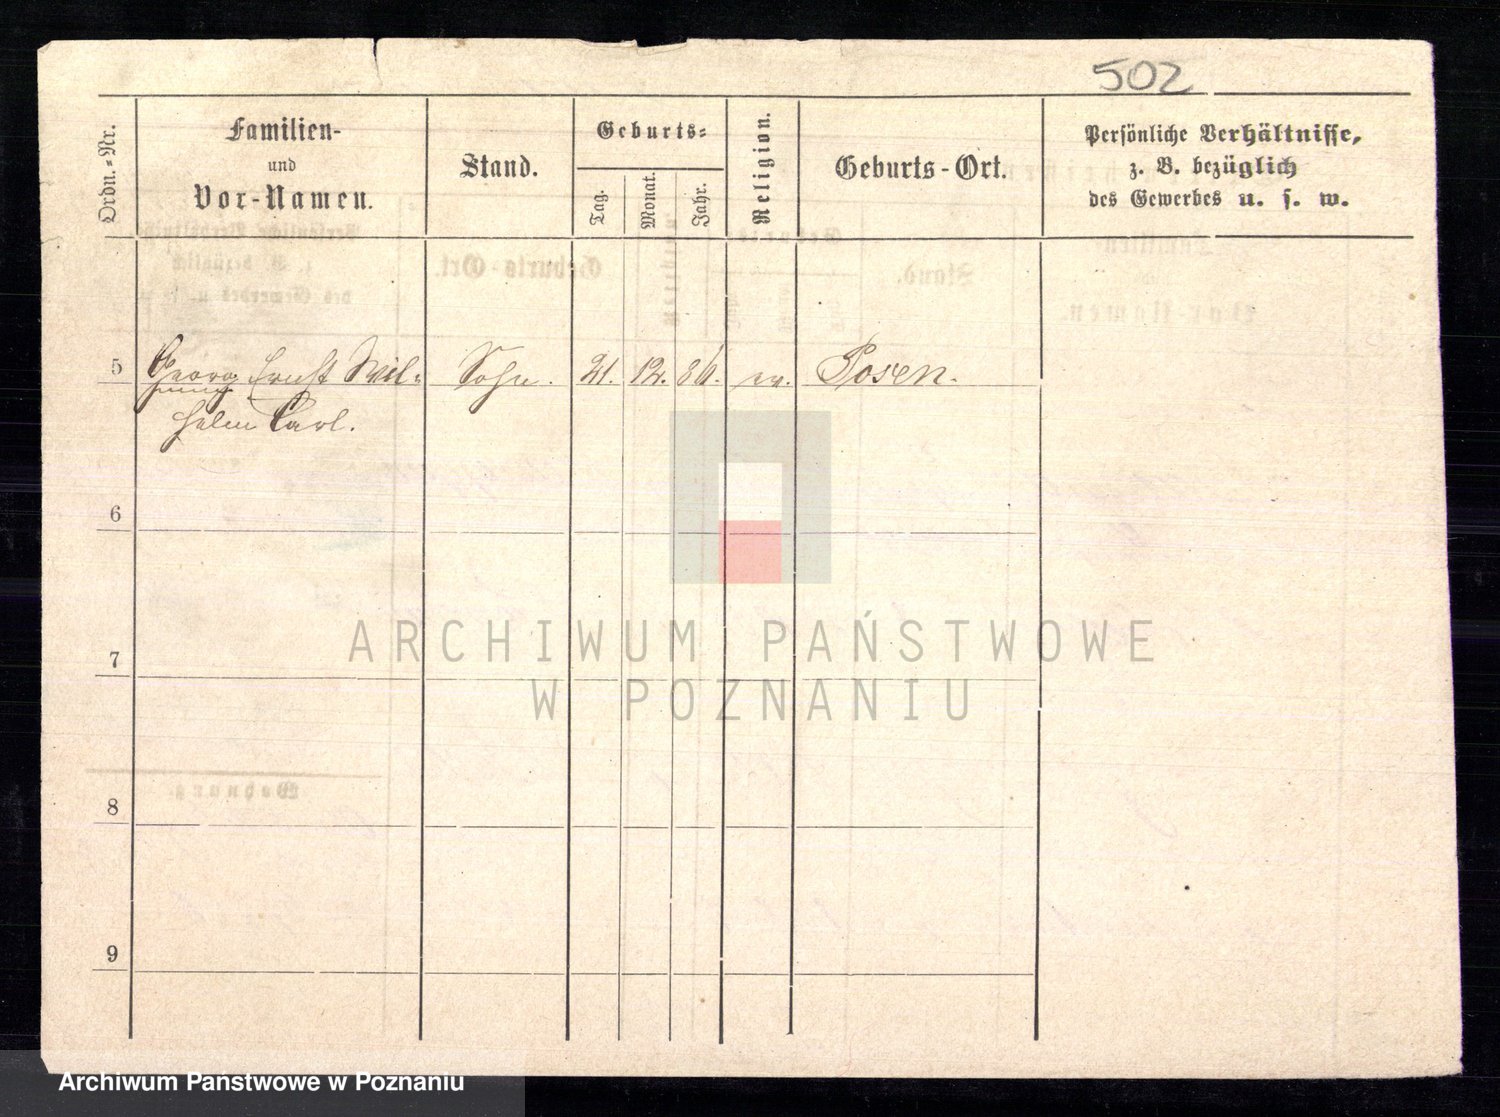 502
Ordn.-Nr.
Familien-
und
Vor-Namen.
Stand.
Geburts-
Tag.
Monat.
Jahr.
Religion.
Geburts-Ort.
Persönliche Verhältnisse,
z. B. bezüglich
des Gewerbes u. s. w.
5 Georg Ernst Wil- Sohn. 21. 12. 86. ev. Posen.
helm Carl.
6
7
8
9
ARCHIWUM PAŃSTWOWE
W POZNANIU
Archiwum Państwowe w Poznaniu